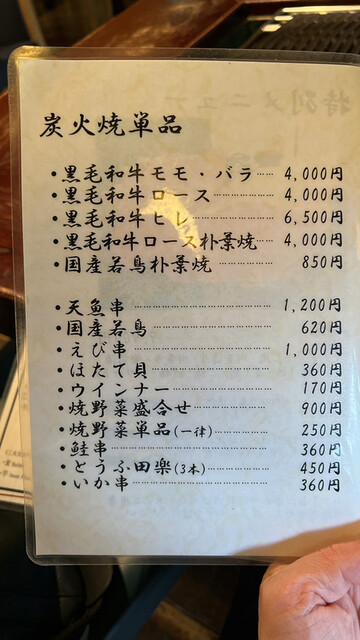 炭火焼単品
・黒毛和牛モモ・バラ…… 4,000円
・黒毛和牛ロース………… 4,000円
・黒毛和牛ヒレ…………… 6,500円
・黒毛和牛ロース朴葉焼… 4,000円
・国産若鳥朴葉焼………… 850円
・天魚串…………………… 1,200円
・国産若鳥………………… 620円
・えび串…………………… 1,000円
・ほたて貝………………… 360円
・ウインナー……………… 170円
・焼野菜盛合せ…………… 900円
・焼野菜単品(一律)……… 250円
・鮭串……………………… 360円
・とうふ田楽(3本)……… 450円
・いか串…………………… 360円